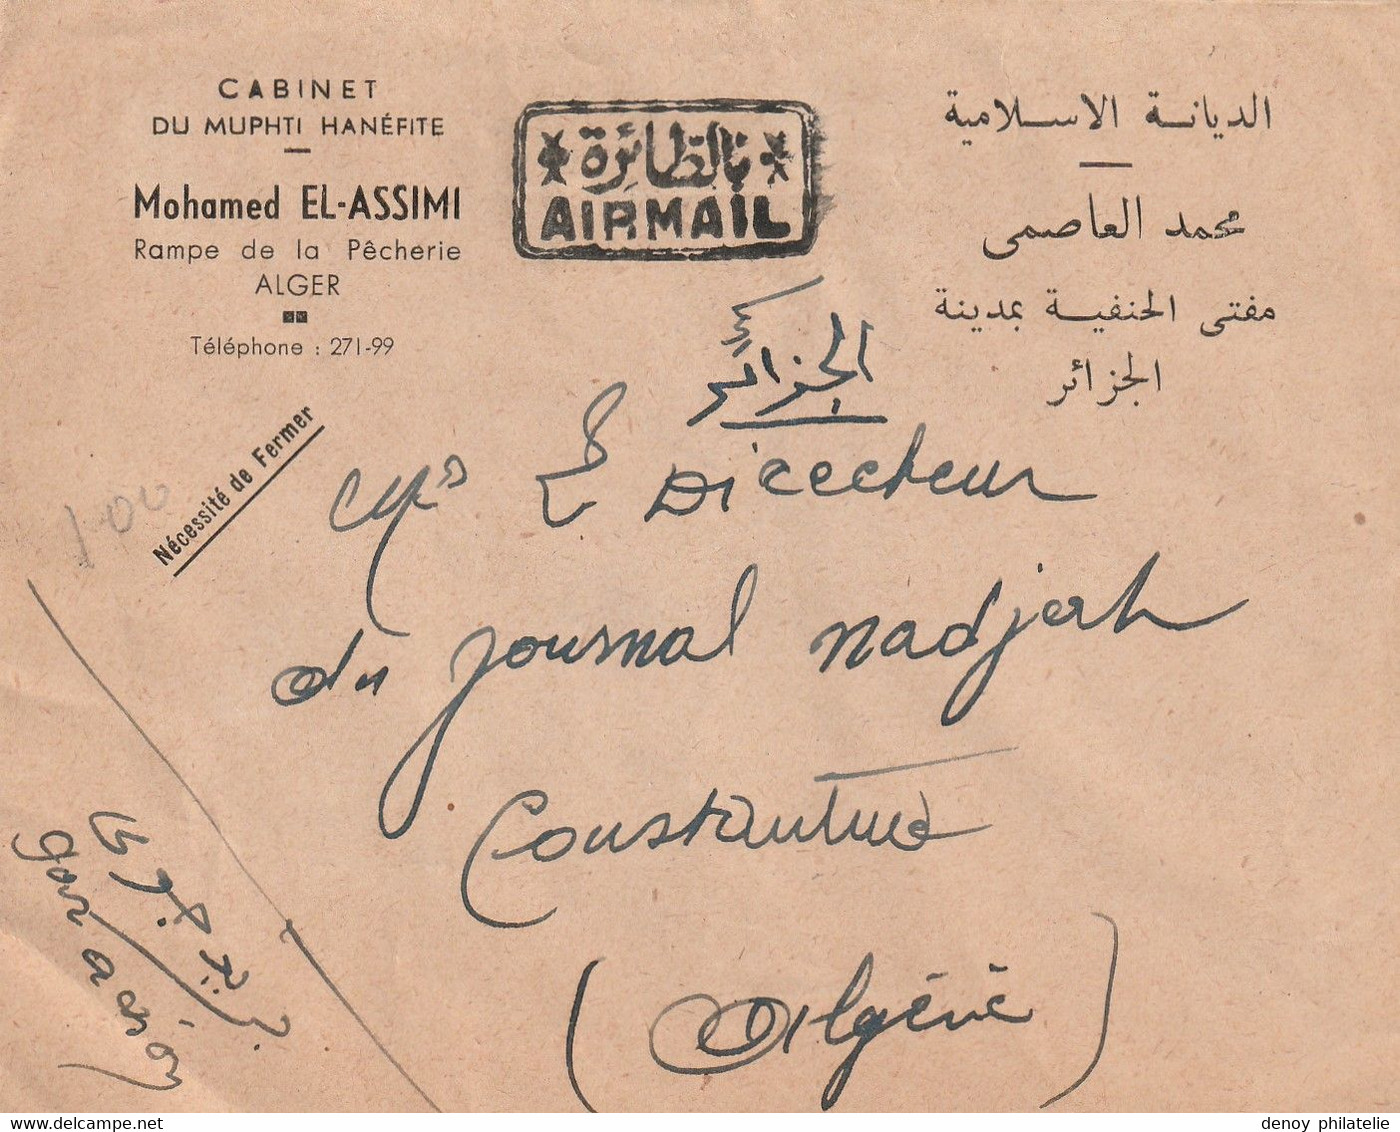 CABINET
DU MUPHTI HANÉFITE
Mohamed EL-ASSIMI
Rampe de la Pêcherie
ALGER
Téléphone : 271-99
بالطائرة
AIRMAIL
الديانة الاسلامية
محمد العاصمي
مفتي الحنفية بمدينة
الجزائر
الجزائر
Nécessité de Fermer
100
Directeur
du Journal Nadjah
Constantine
(Algérie)
par avion
delcampe.net
denoy philatelie